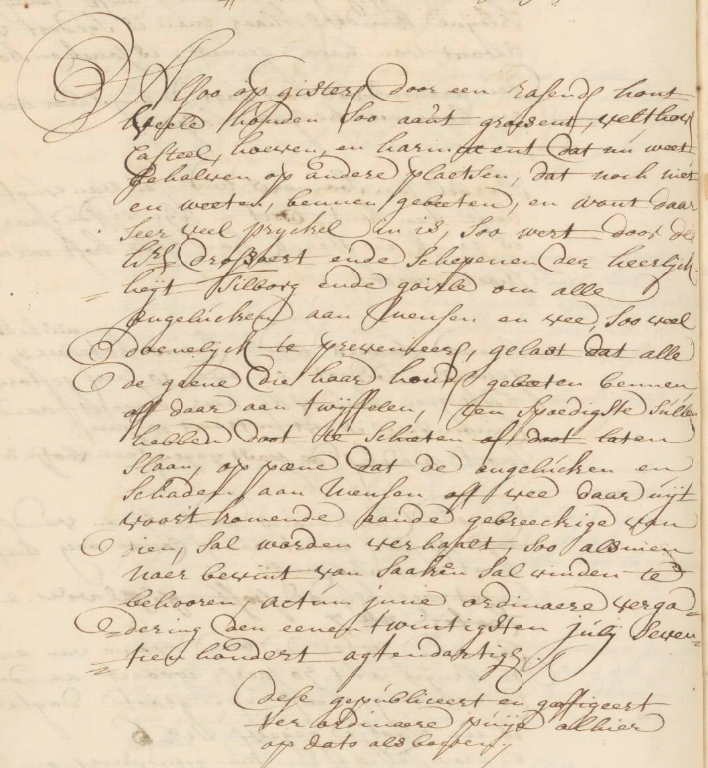 Alsoo op gisteren door een rasende hont
veele honden soo aant groesent, velthoven
Casteel, hoeven, en harmecent dat nu weet
behalven op andere plaetsen, dat noch niet
en weeten, bennen gebeeten, en want daar
seer veel pryckel in is, soo wert door de
hrn drossaert ende schepenen der heerlijck
heijt Tilborg ende goirle om alle
ongelucken aan mensen en vee, soo veel
doenelijck te prevenieren, gelast dat alle
de geene die haar hond gebeten bennen
off daar aan twijffelen, ten spoedigste sullen
hebben doot te schieten of doot laten
slaan, op pœne dat de ongelucken en
schaden aan mensen off vee daar uijt
voort komende aande gebreeckige van
dien, sal worden verhaalt, soo als men
naer bevint van saaken sal vinden te
behooren, actum inne ordinaere verga
dering den eenentwintigsten julij seven
tien hondert agtendartig
dese gepubliceert en geaffigeert
ter ordinaere puije alhier
op dato als boven